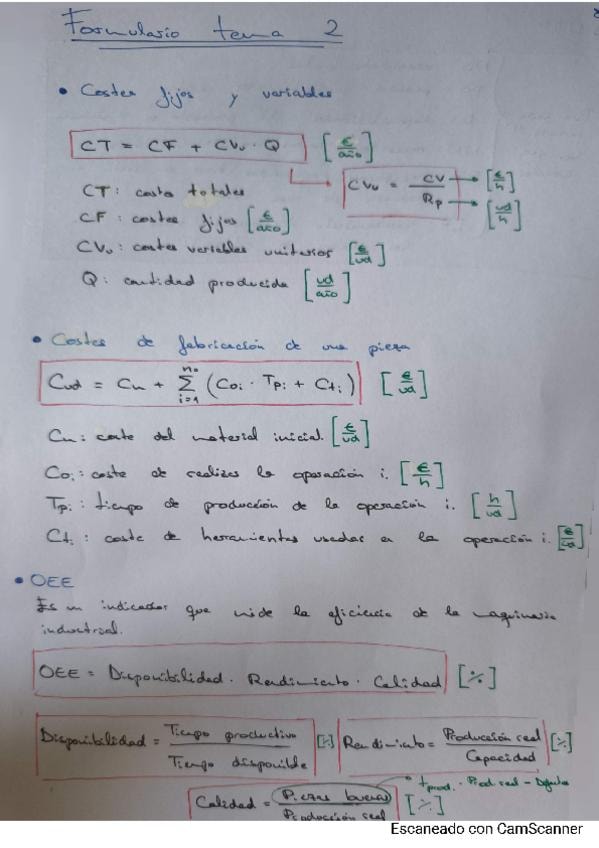 Formulario tema 2
• Costes fijos y variables
CT = CF + CVu · Q [€/año]
CVu = CV/Rp → [€/h] → [ud/h]
CT: costes totales
CF: costes fijos [€/año]
CVu: costes variables unitarios [€/ud]
Q: cantidad producida [ud/año]
• Costes de fabricación de una pieza
Cud = Cm + Σ i=1 no (Coi · Tpi + Cti) [€/ud]
Cm: coste del material inicial. [€/ud]
Coi: coste de realizar la operación i. [€/h]
Tpi: tiempo de producción de la operación i. [h/ud]
Cti: coste de herramientas usadas en la operación i. [€/ud]
• OEE
Es un indicador que mide la eficiencia de la maquinaria
industrial.
OEE = Disponibilidad · Rendimiento · Calidad [%]
Disponibilidad = Tiempo productivo/Tiempo disponible [%] Rendimiento = Producción real/Capacidad [%]
Calidad = Piezas buenas/Producción real [%] → tprod. · Prod real -
Escaneado con CamScanner